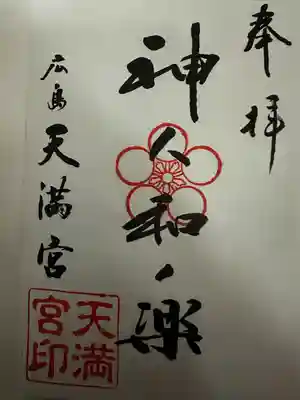 奉拝
神人和ノ楽
広島天満宮
天満宮印